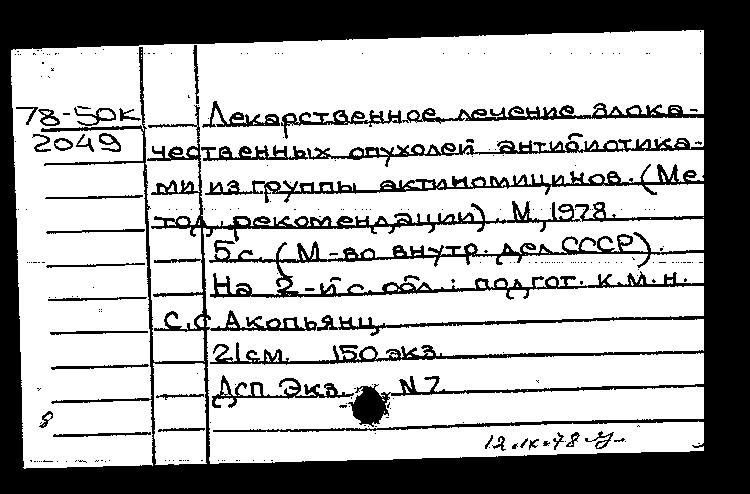 78-50к
2049
Лекарственное лечение злока-
чественных опухолей антибиотика-
ми из группы актиномицинов. (Ме-
тод. рекомендации). М., 1978.
5 с. (М-во внутр. дел СССР).
На 2-й с. обл.: подгот. к.м.н.
С.С. Акопьянц.
21 см. 150 экз.
Дсп. Экз. N 7
8
12.IX.78